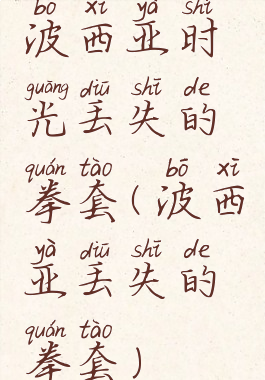 bō xī yà shí
波西亚时
guāng diū shī de
光丢失的
quán tào bō xī
拳套(波西
yà diū shī de
亚丢失的
quán tào
拳套)